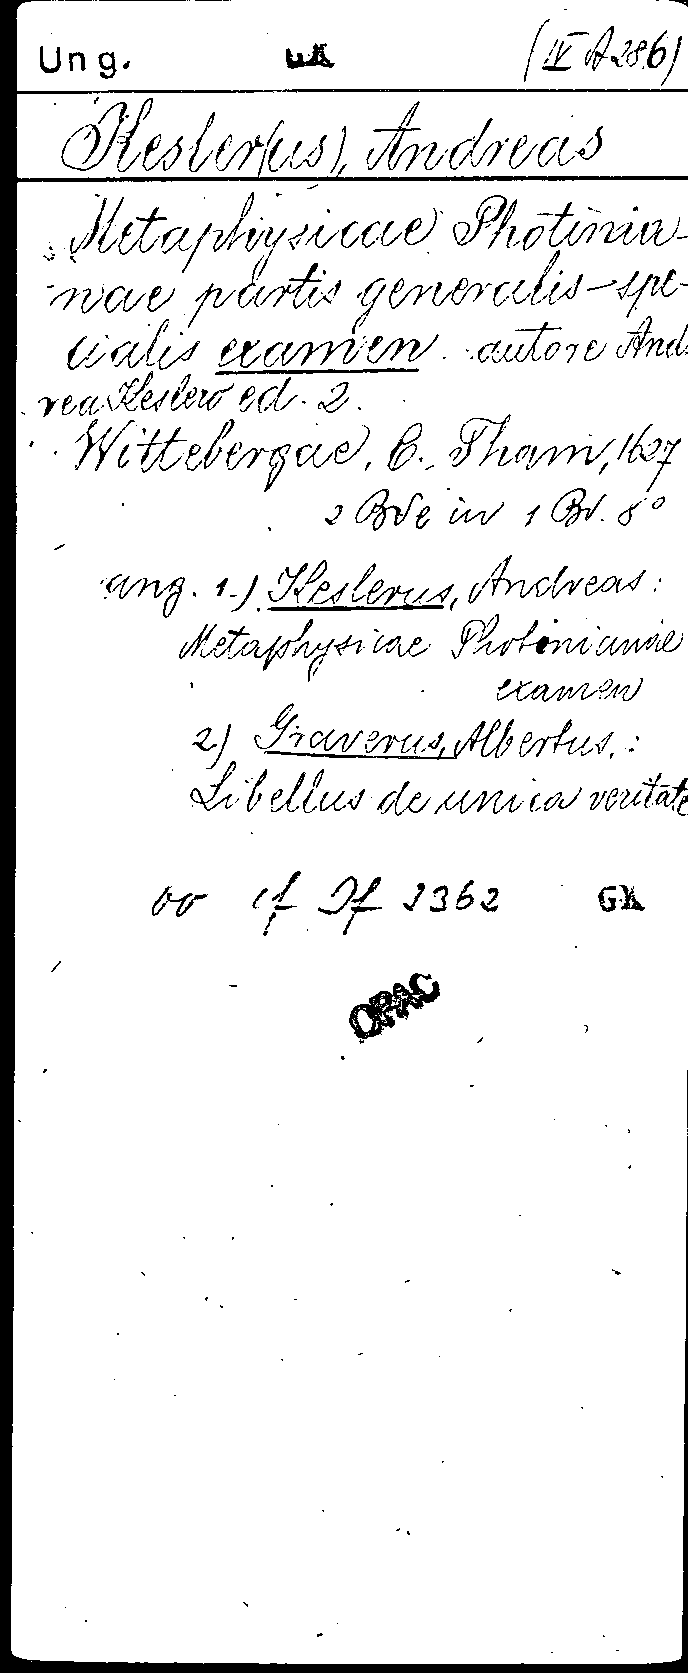 Ung. (IV A 286)
Kesler(us), Andreas
Metaphysicae Photinia-
nae partis generalis-spe-
cialis examen autore And-
rea Keslero ed. 2.
Wittebergae, C. Tham, 1627
2 Bde in 1 Bd. 8°
ang. 1.) Keslerus, Andreas:
Metaphysicae Photinianae
examen
2) Graverus, Albertus,:
Libellus de unica veritate
00 cf Df 2362
OPAC